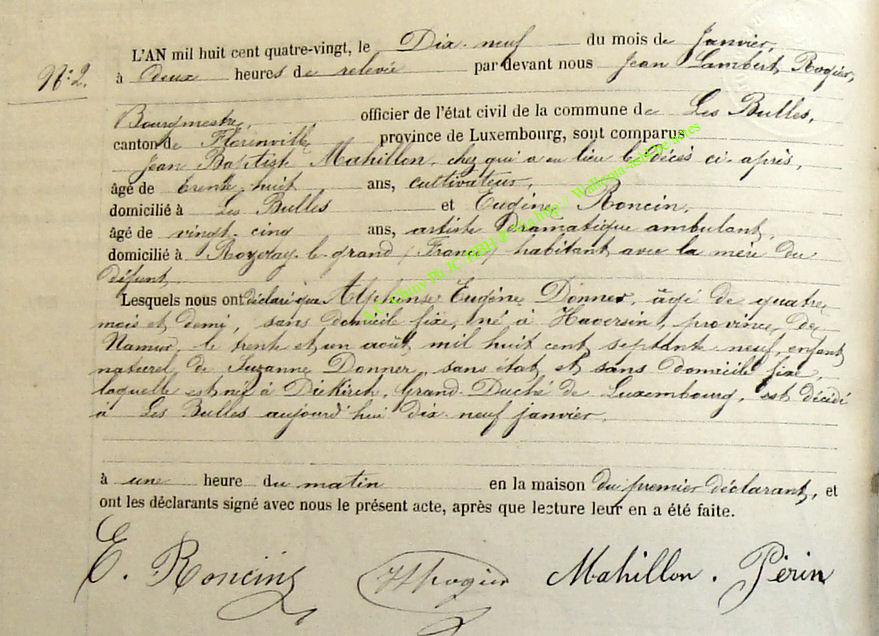 L'AN mil huit cent quatre-vingt, le Dix-neuf du mois de Janvier,
N° 2. à deux heures de relevée par devant nous Jean Lambert Rogier,
Bourgmestre, officier de l'état civil de la commune de Les Bulles,
canton de Florenville province de Luxembourg, sont comparus
Jean Baptiste Mahillon, chez qui a eu lieu le décès ci-après,
âgé de trente huit ans, cultivateur,
domicilié à Les Bulles et Eugène Roncin,
âgé de vingt-cinq ans, artiste dramatique ambulant,
domicilié à le grand (France) habitant avec la mère du
défunt,
Lesquels nous ont déclaré que Alphonse Eugène Donner, âgé de quatre
mois et demi, sans domicile fixe, né à Haversin, province de
Namur, le trente et un août mil huit cent septante neuf, enfant
naturel de Suzanne Donner, sans état et sans domicile fixe
laquelle est née à Diekirch, Grand-Duché de Luxembourg, est décédé
à Les Bulles aujourd'hui dix-neuf janvier,
à une heure du matin en la maison du premier déclarant, et
ont les déclarants signé avec nous le présent acte, après que lecture leur en a été faite.
E. Roncin Rogier Mahillon. Périn